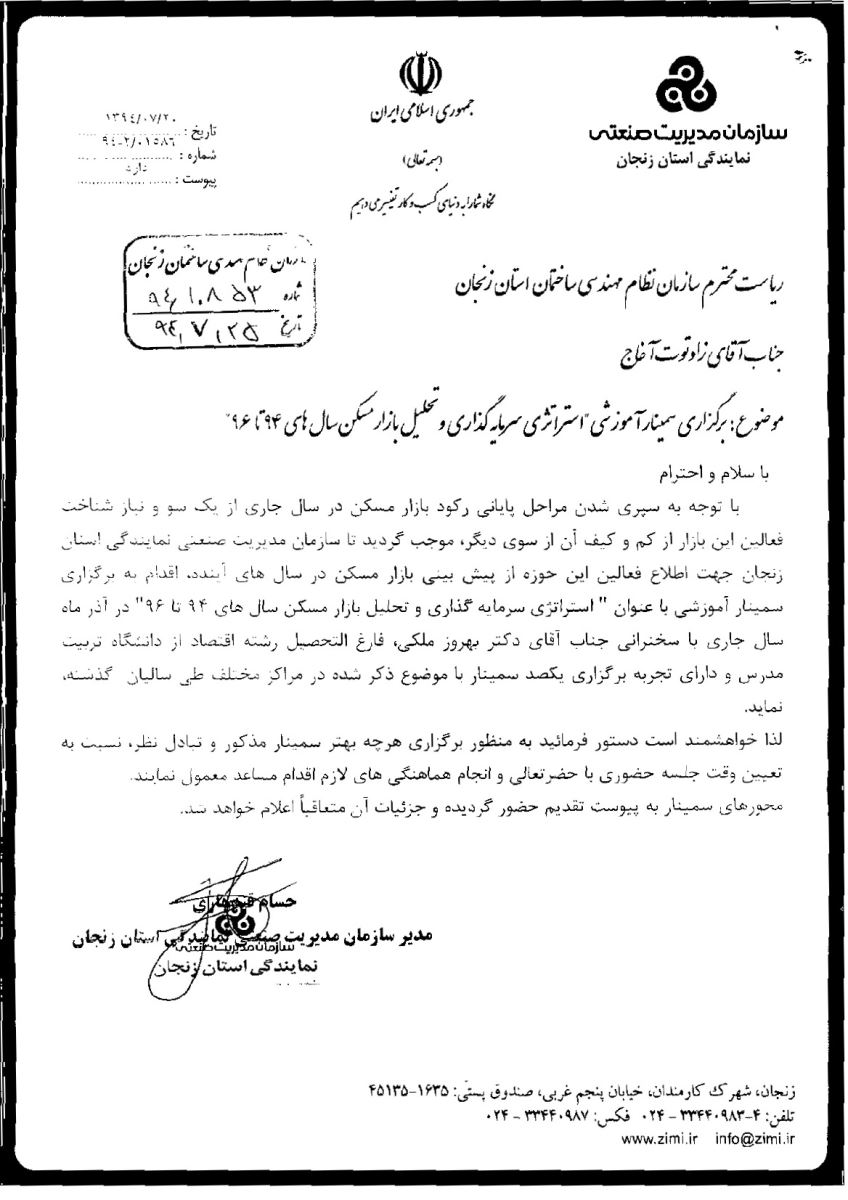 جمهوری اسلامی ایران
(بسمه تعالی)
نگاه شما را به دنیای کسب و کار تغییر می دهیم
سازمان مدیریت صنعتی
نمایندگی استان زنجان
تاریخ : ۱۳۹٤/۰۷/۲۰
شماره : ۹٤-۲/۰۱۵۸٦
پیوست : دارد
سازمان نظام مهندسی ساختمان زنجان
شماره ۹٤,۱۰۸۵۳
تاریخ ۹٤,۷,۲۵
ریاست محترم سازمان نظام مهندسی ساختمان استان زنجان
جناب آقای زادتوت آغاج
موضوع: برگزاری سمینار آموزشی "استراتژی سرمایه گذاری و تحلیل بازار مسکن سال های ۹۴ تا ۹۶"
با سلام و احترام
با توجه به سپری شدن مراحل پایانی رکود بازار مسکن در سال جاری از یک سو و نیاز شناخت
فعالین این بازار از کم و کیف آن از سوی دیگر، موجب گردید تا سازمان مدیریت صنعتی نمایندگی استان
زنجان جهت اطلاع فعالین این حوزه از پیش بینی بازار مسکن در سال های آینده، اقدام به برگزاری
سمینار آموزشی با عنوان " استراتژی سرمایه گذاری و تحلیل بازار مسکن سال های ۹۴ تا ۹۶" در آذر ماه
سال جاری با سخنرانی جناب آقای دکتر بهروز ملکی، فارغ التحصیل رشته اقتصاد از دانشگاه تربیت
مدرس و دارای تجربه برگزاری یکصد سمینار با موضوع ذکر شده در مراکز مختلف طی سالیان گذشته،
نماید.
لذا خواهشمند است دستور فرمائید به منظور برگزاری هرچه بهتر سمینار مذکور و تبادل نظر، نسبت به
تعیین وقت جلسه حضوری با حضرتعالی و انجام هماهنگی های لازم اقدام مساعد معمول نمایند.
محورهای سمینار به پیوست تقدیم حضور گردیده و جزئیات آن متعاقباً اعلام خواهد شد.
حسام
مدیر سازمان مدیریت صنعتی نمایندگی استان زنجان
سازمان مدیریت صنعتی
نمایندگی استان زنجان
زنجان، شهرک کارمندان، خیابان پنجم غربی، صندوق پستی: ۱۶۳۵-۴۵۱۳۵
تلفن: ۴-۳۳۴۴۰۹۸۳ - ۰۲۴ فکس: ۳۳۴۴۰۹۸۷ - ۰۲۴
www.zimi.ir info@zimi.ir